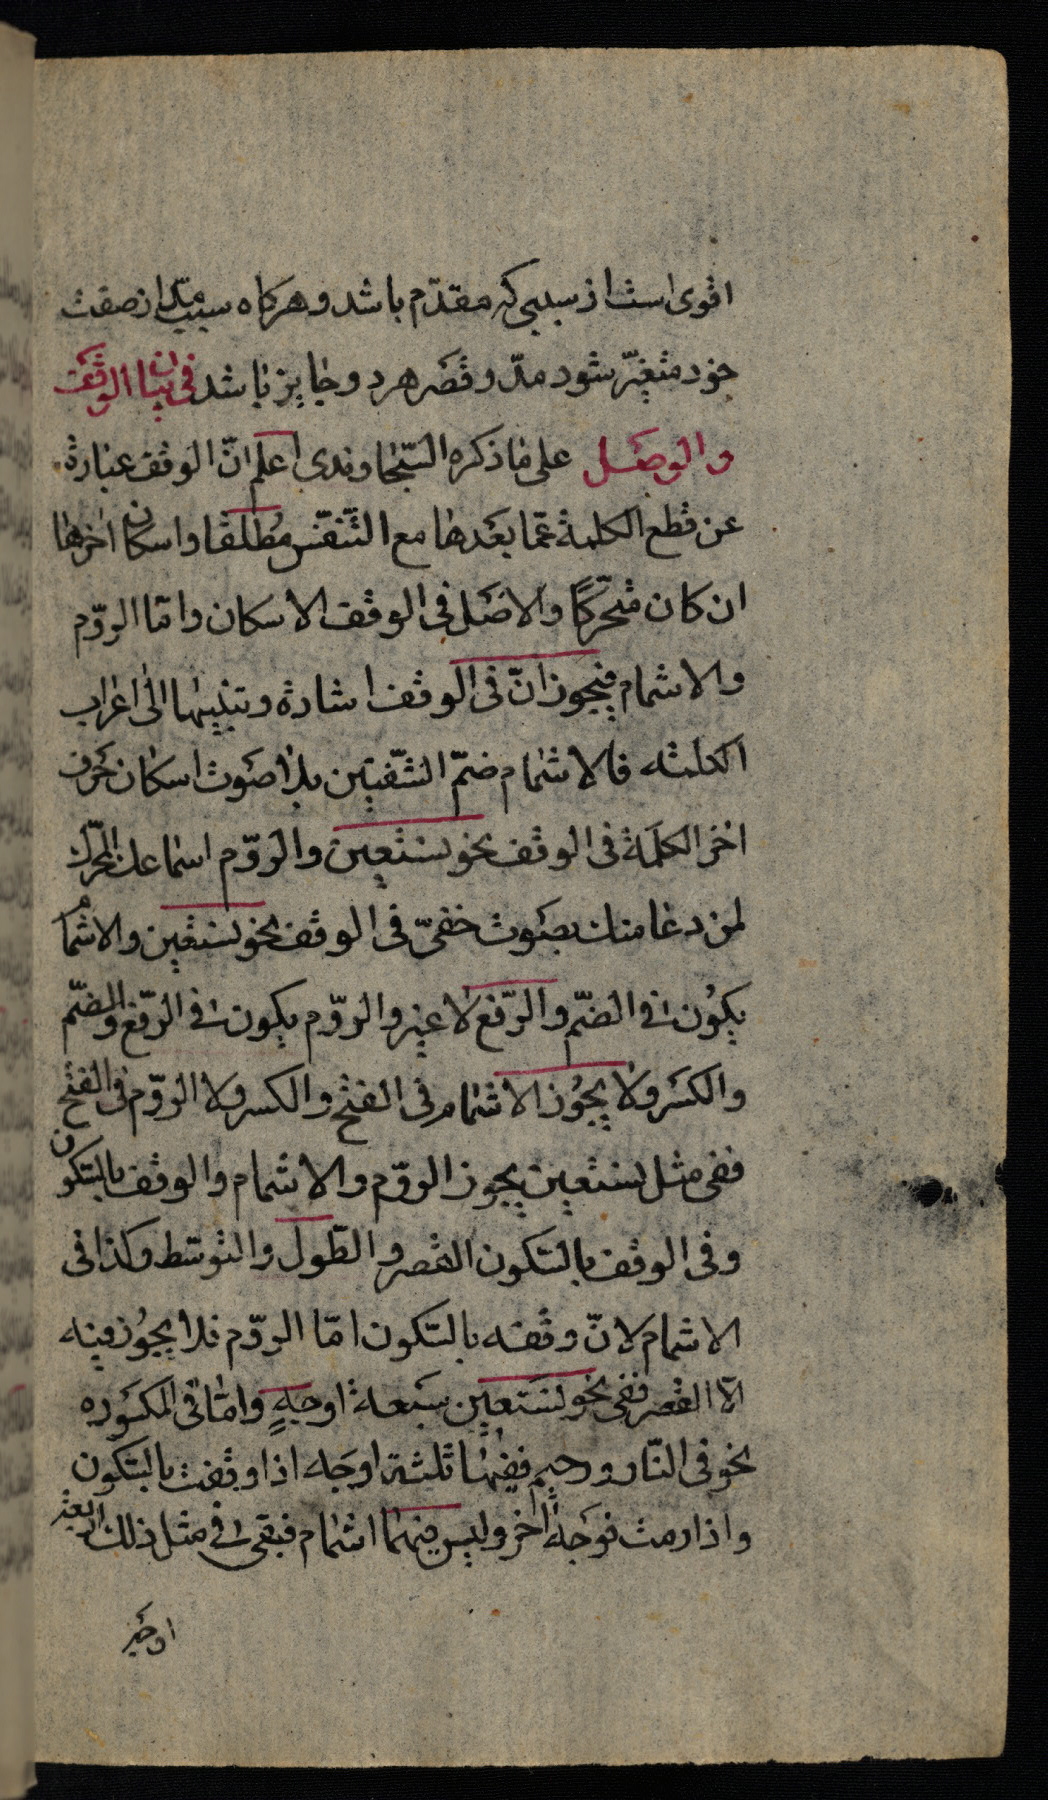 اقوی است از سببی که مقدّم باشد و هرکاه سبب مدّ از صفت
خود متغیّر شود مدّ و قصر هر دو جایز باشد فی بیان الوقف
والوصل علی ما ذکره السّجاوندی اعلم انّ الوقف عبارة
عن قطع الکلمة عمّا بعدها مع التّنفّس مُطلقا واسکان اخرها
ان کان متحرّکًا والاصل فی الوقف الاسکان وامّا الرّوم
والاشمام فیجوزانّ فی الوقف اشارة وتنبیها الی اعراب
الکلمه فالاشمام ضمّ الشّفتین بلا صوت اسکان حرف
اخر الکلمة فی الوقف نحو نستعین والرّوم اسماعک المحرّک
لمن دغا منک بصوت خفیّ فی الوقف نحو نستعین والاشما
یکون فی الضّم والرّفع لا غیر والرّوم یکون فی الرّفع والضّم
والکسر ولا یجوز الاشمام فی الفتح والکسر ولا الرّوم فی الفتح
ففی مثل نستعین یجوز الرّوم والاشمام والوقف بالسّکون
وفی الوقف بالسّکون القصر والطّول والتّوسّط وکذا فی
الاشمام لانّ وقفه بالسّکون امّا الرّوم فلا یجوز فیه
الّا القصر ففی نحو نستعین سبعة اوجهٍ وامّا فی المکسوره
نحو فی النّار ورحیم ففیها ثلثة اوجه اذا وقفت بالسّکون
واذا رمت فوجهٌ اخر ولیس فیهما اشمام فبقی فی مثل ذلک اربعة
اوجه